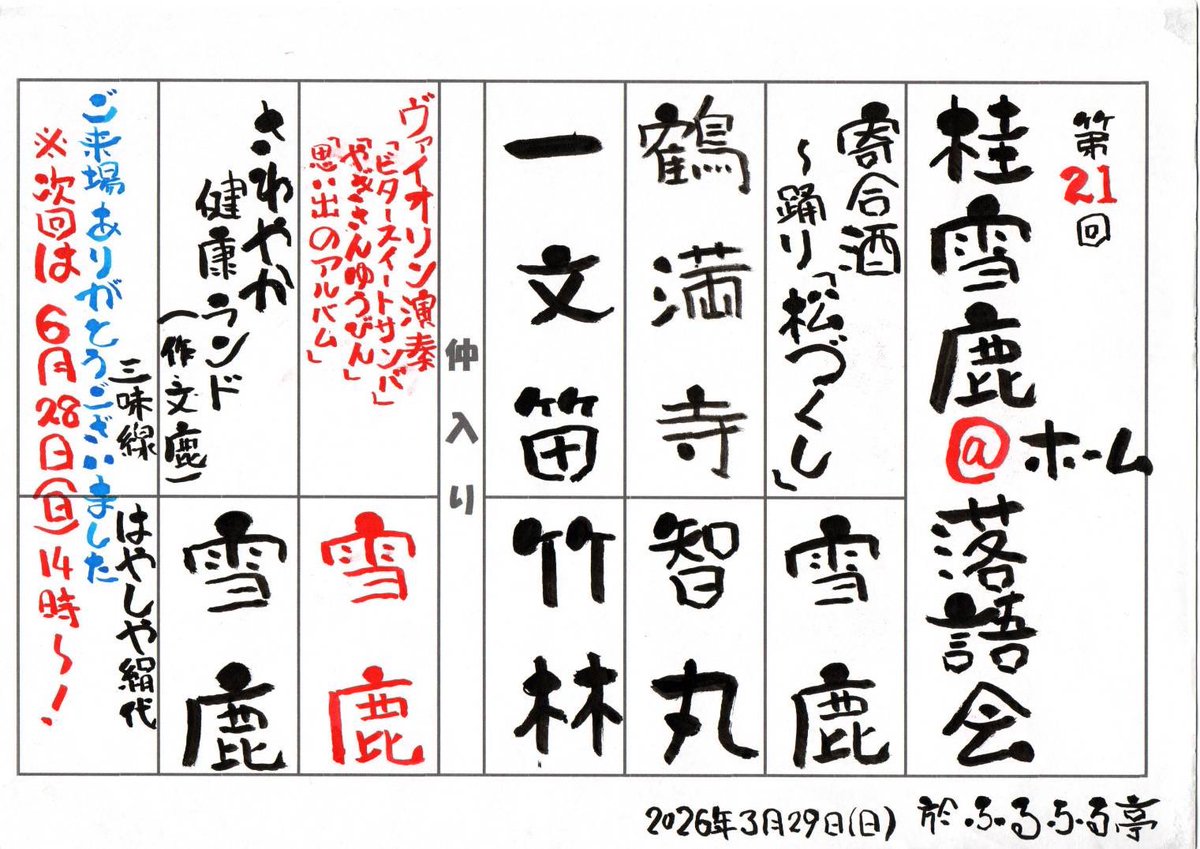 第21回
桂雪鹿@ホーム落語会
寄合酒
～踊り「松づくし」
雪鹿
鶴満寺
智丸
一文笛
竹林
仲入り
ヴァイオリン演奏
「ビタースイートサンバ」
「やぎさんゆうびん」
「思い出のアルバム」
雪鹿
さわやか
健康ランド
(作・文鹿)
雪鹿
三味線 はやしや絹代
ご来場ありがとうございました
※次回は6月28日(日)14時～!
2026年3月29日(日) 於・ふ・る・る・る亭